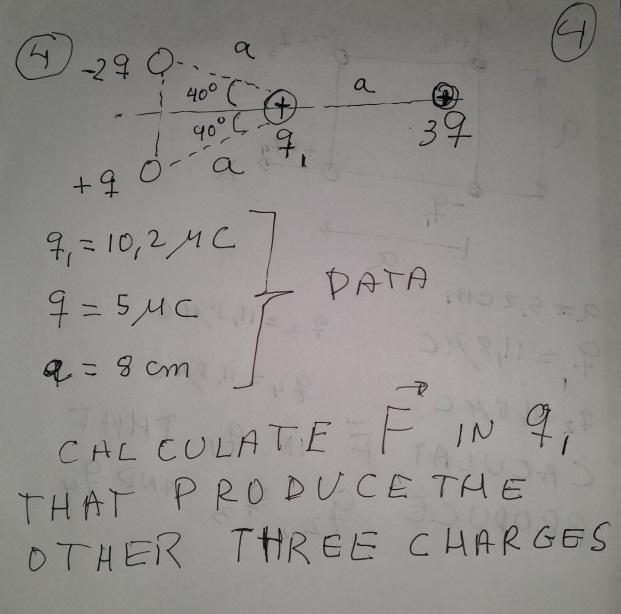 4
4
-2q
a
40°
a
40°
q₁
3q
a
+q
q₁ = 10,2 μC
q = 5 μC
a = 8 cm
DATA
CALCULATE F⃗ IN q₁
THAT PRODUCE THE
OTHER THREE CHARGES